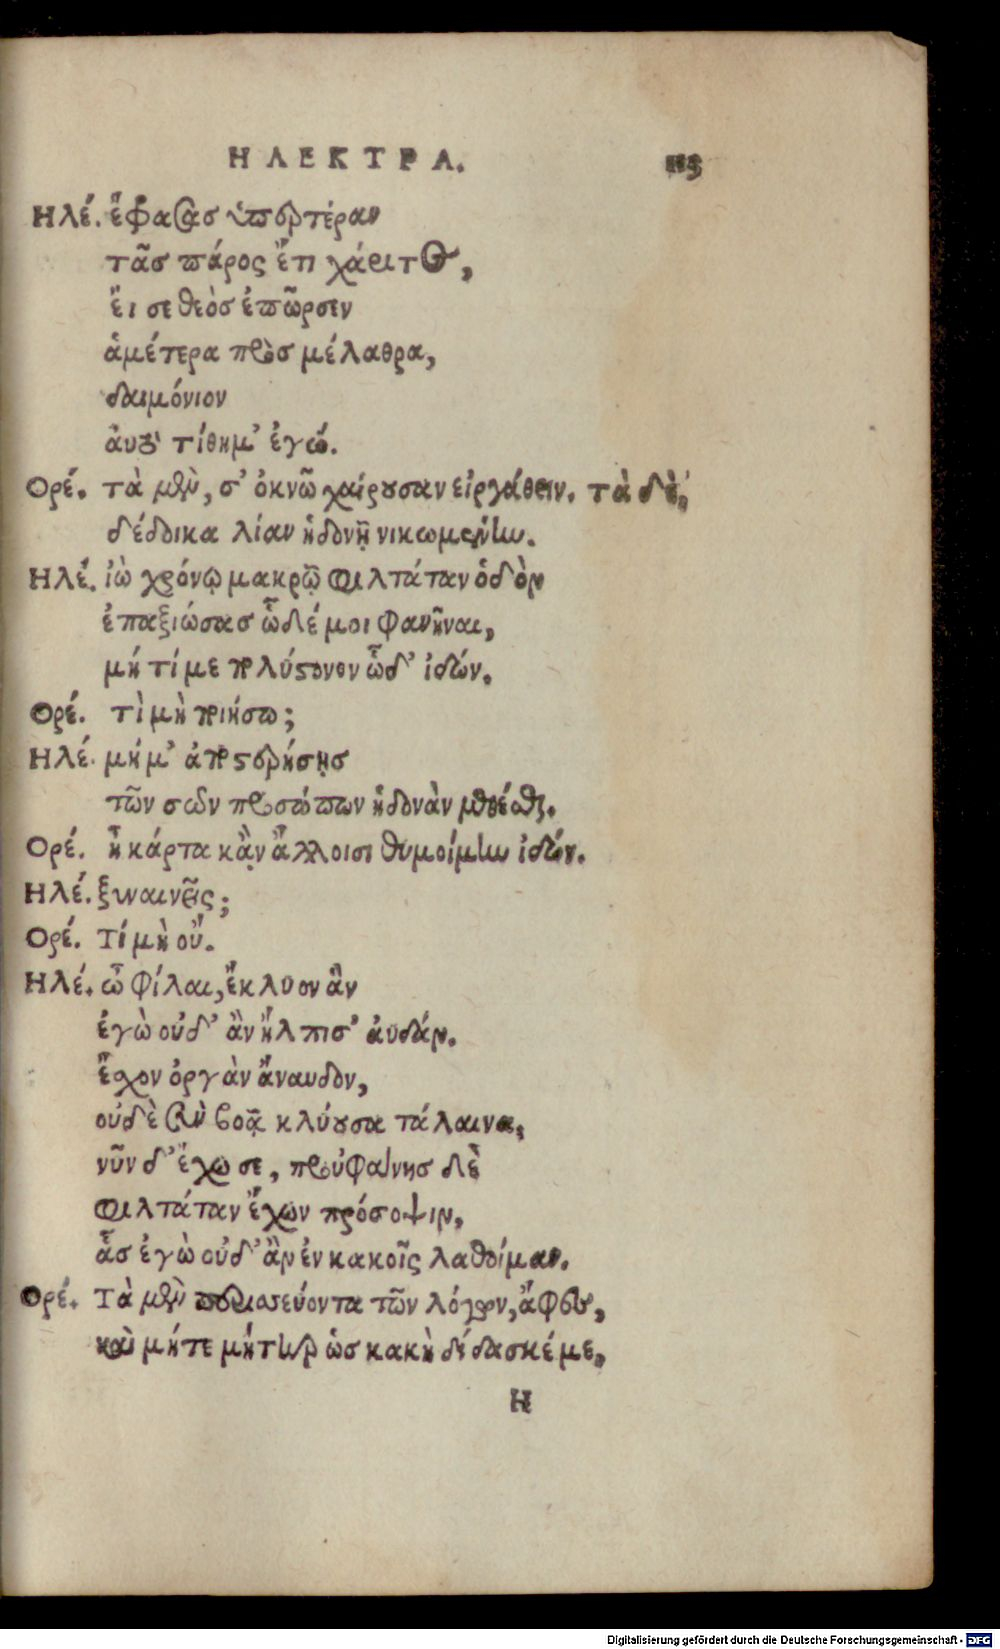 ΗΛΕΚΤΡΑ. 113
Ηλέ. ἔφρασας ὑπερτέραν
τᾶς πάρος ἔτι χάριτος,
εἴ σε θεὸς ἐπῶρσεν
ἁμέτερα πρὸς μέλαθρα,
δαιμόνιον
αὐτὸ τίθημ' ἐγώ.
Ορέ. τὰ μὲν, σ' ὀκνῶ χαίρουσαν εἰργάθειν. τὰ δὲ,
δέδοικα λίαν ἡδονῇ νικωμένην.
Ηλέ. ἰὼ χρόνῳ μακρῷ φιλτάταν ὁδὸν
ἐπαξιώσας ὧδέ μοι φανῆναι,
μή τί με πολύστονον ὧδ' ἰδών.
Ορέ. τὶ μὴ ποιήσω;
Ηλέ. μή μ' ἀποστερήσῃς
τῶν σῶν προσώπων ἡδονὰν μεθέσθαι.
Ορέ. ἦ κάρτα κᾂν ἄλλοισι θυμοίμην ἰδών.
Ηλέ. ξυναινεῖς;
Ορέ. Τί μὴ οὔ.
Ηλέ. ὦ φίλαι, ἔκλυον ἂν
ἐγὼ οὐδ' ἂν ἤλπισ' αὐδάν.
ἔσχον ὀργὰν ἄναυδον,
οὐδὲ σὺν βοᾷ κλύουσα τάλαινα,
νῦν δ' ἔχω σε, προὐφάνης δὲ
φιλτάταν ἔχων πρόσοψιν,
ἇς ἐγὼ οὐδ' ἂν ἐν κακοῖς λαθοίμαν.
Ορέ. Τὰ μὲν περισσεύοντα τῶν λόγων, ἄφες,
καὶ μήτε μήτηρ ὡς κακὴ δίδασκέ με,
H
Digitalisierung gefördert durch die Deutsche Forschungsgemeinschaft - DFG